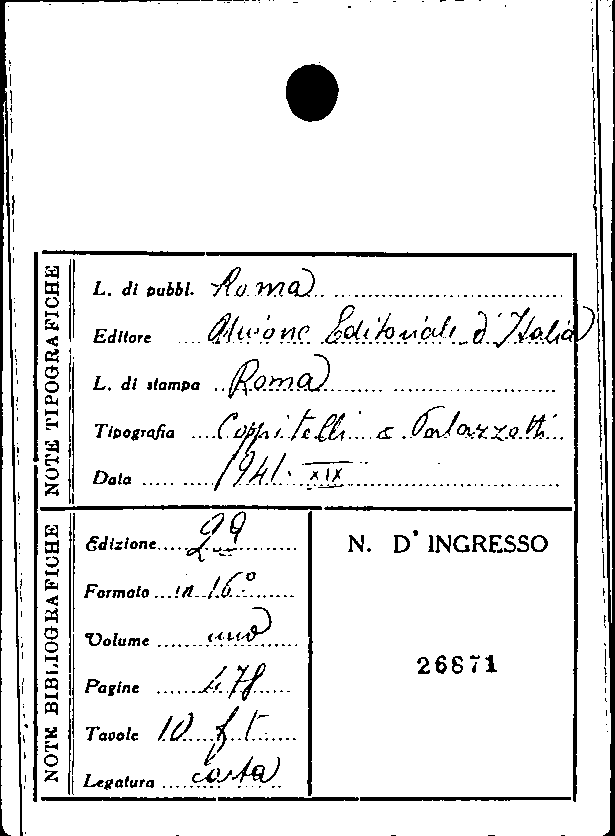 NOTE TIPOGRAFICHE
L. di pubbl. Roma
Editore Unione Editoriale d'Italia
L. di stampa Roma
Tipografia Coppitelli e Palazzotti
Data 1941. XIX
NOTE BIBLIOGRAFICHE
Edizione 2ª
Formato in 16°
Volume uno
Pagine 478
Tavole 10 f t
Legatura carta
N. D'INGRESSO
26871